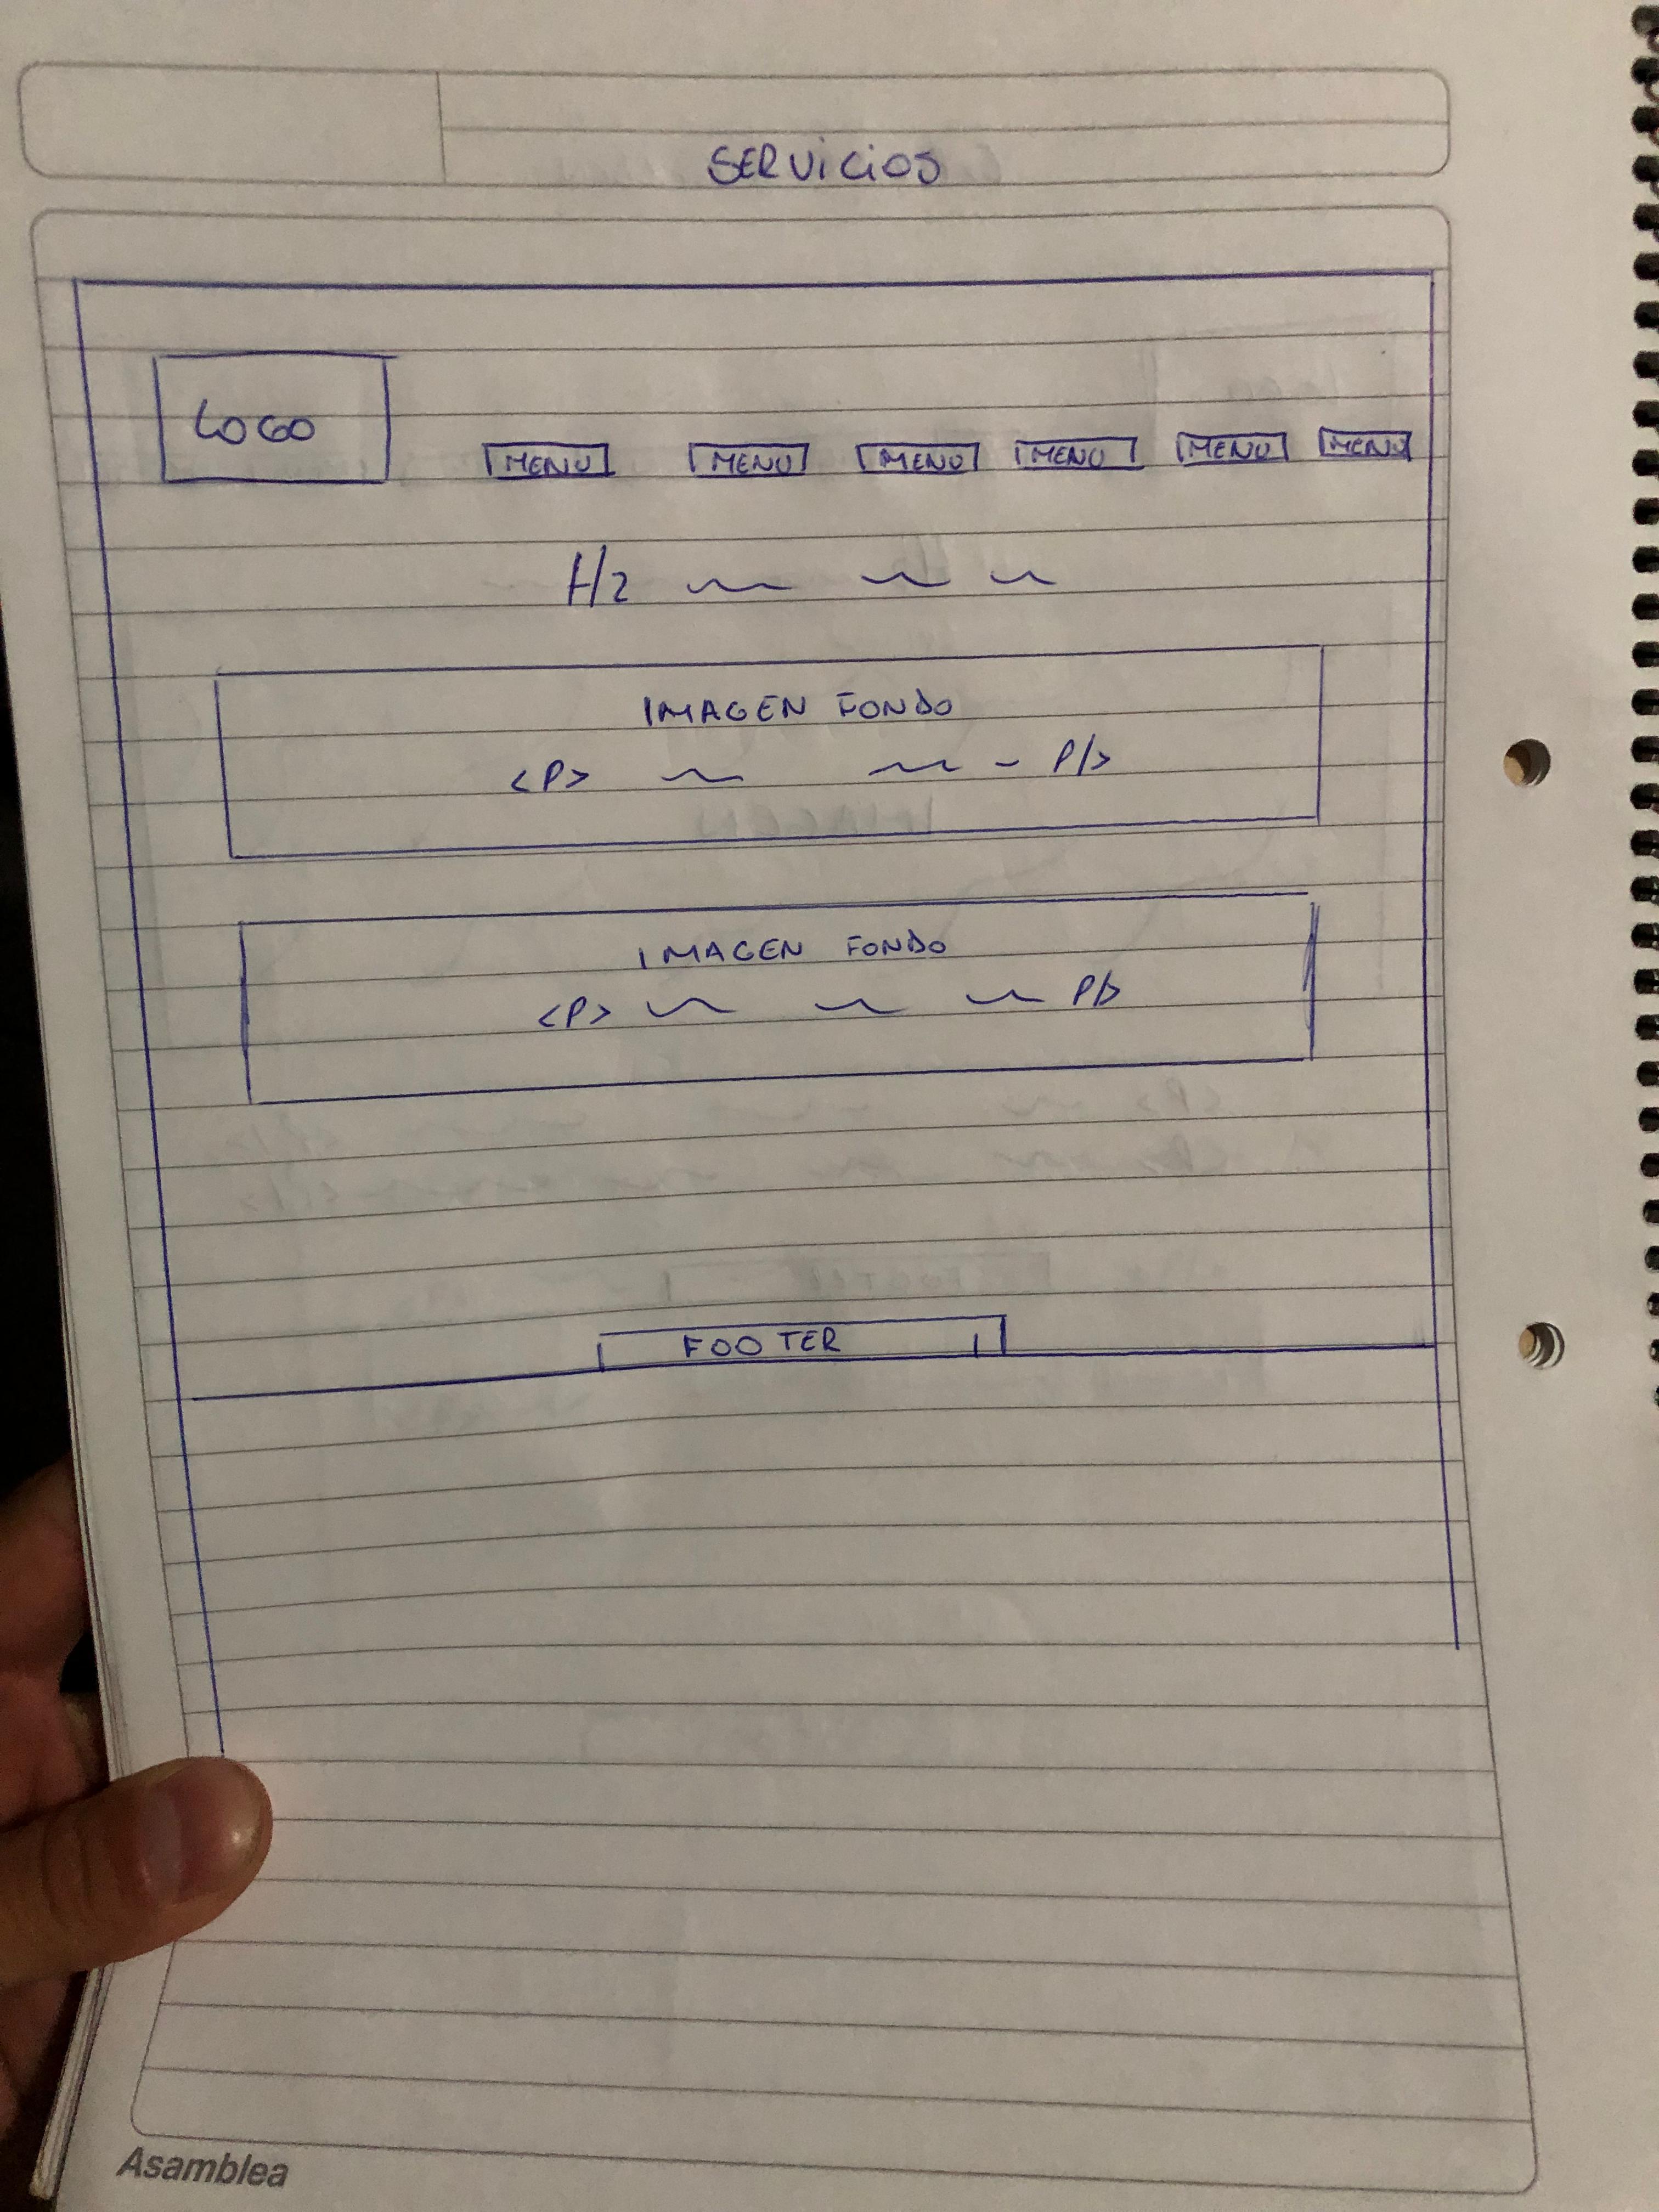 SERVICIOS
LOGO
MENU MENU MENU MENU MENU MENU
H2
IMAGEN FONDO
<P> P/>
IMAGEN FONDO
<P> P/>
FOOTER
Asamblea